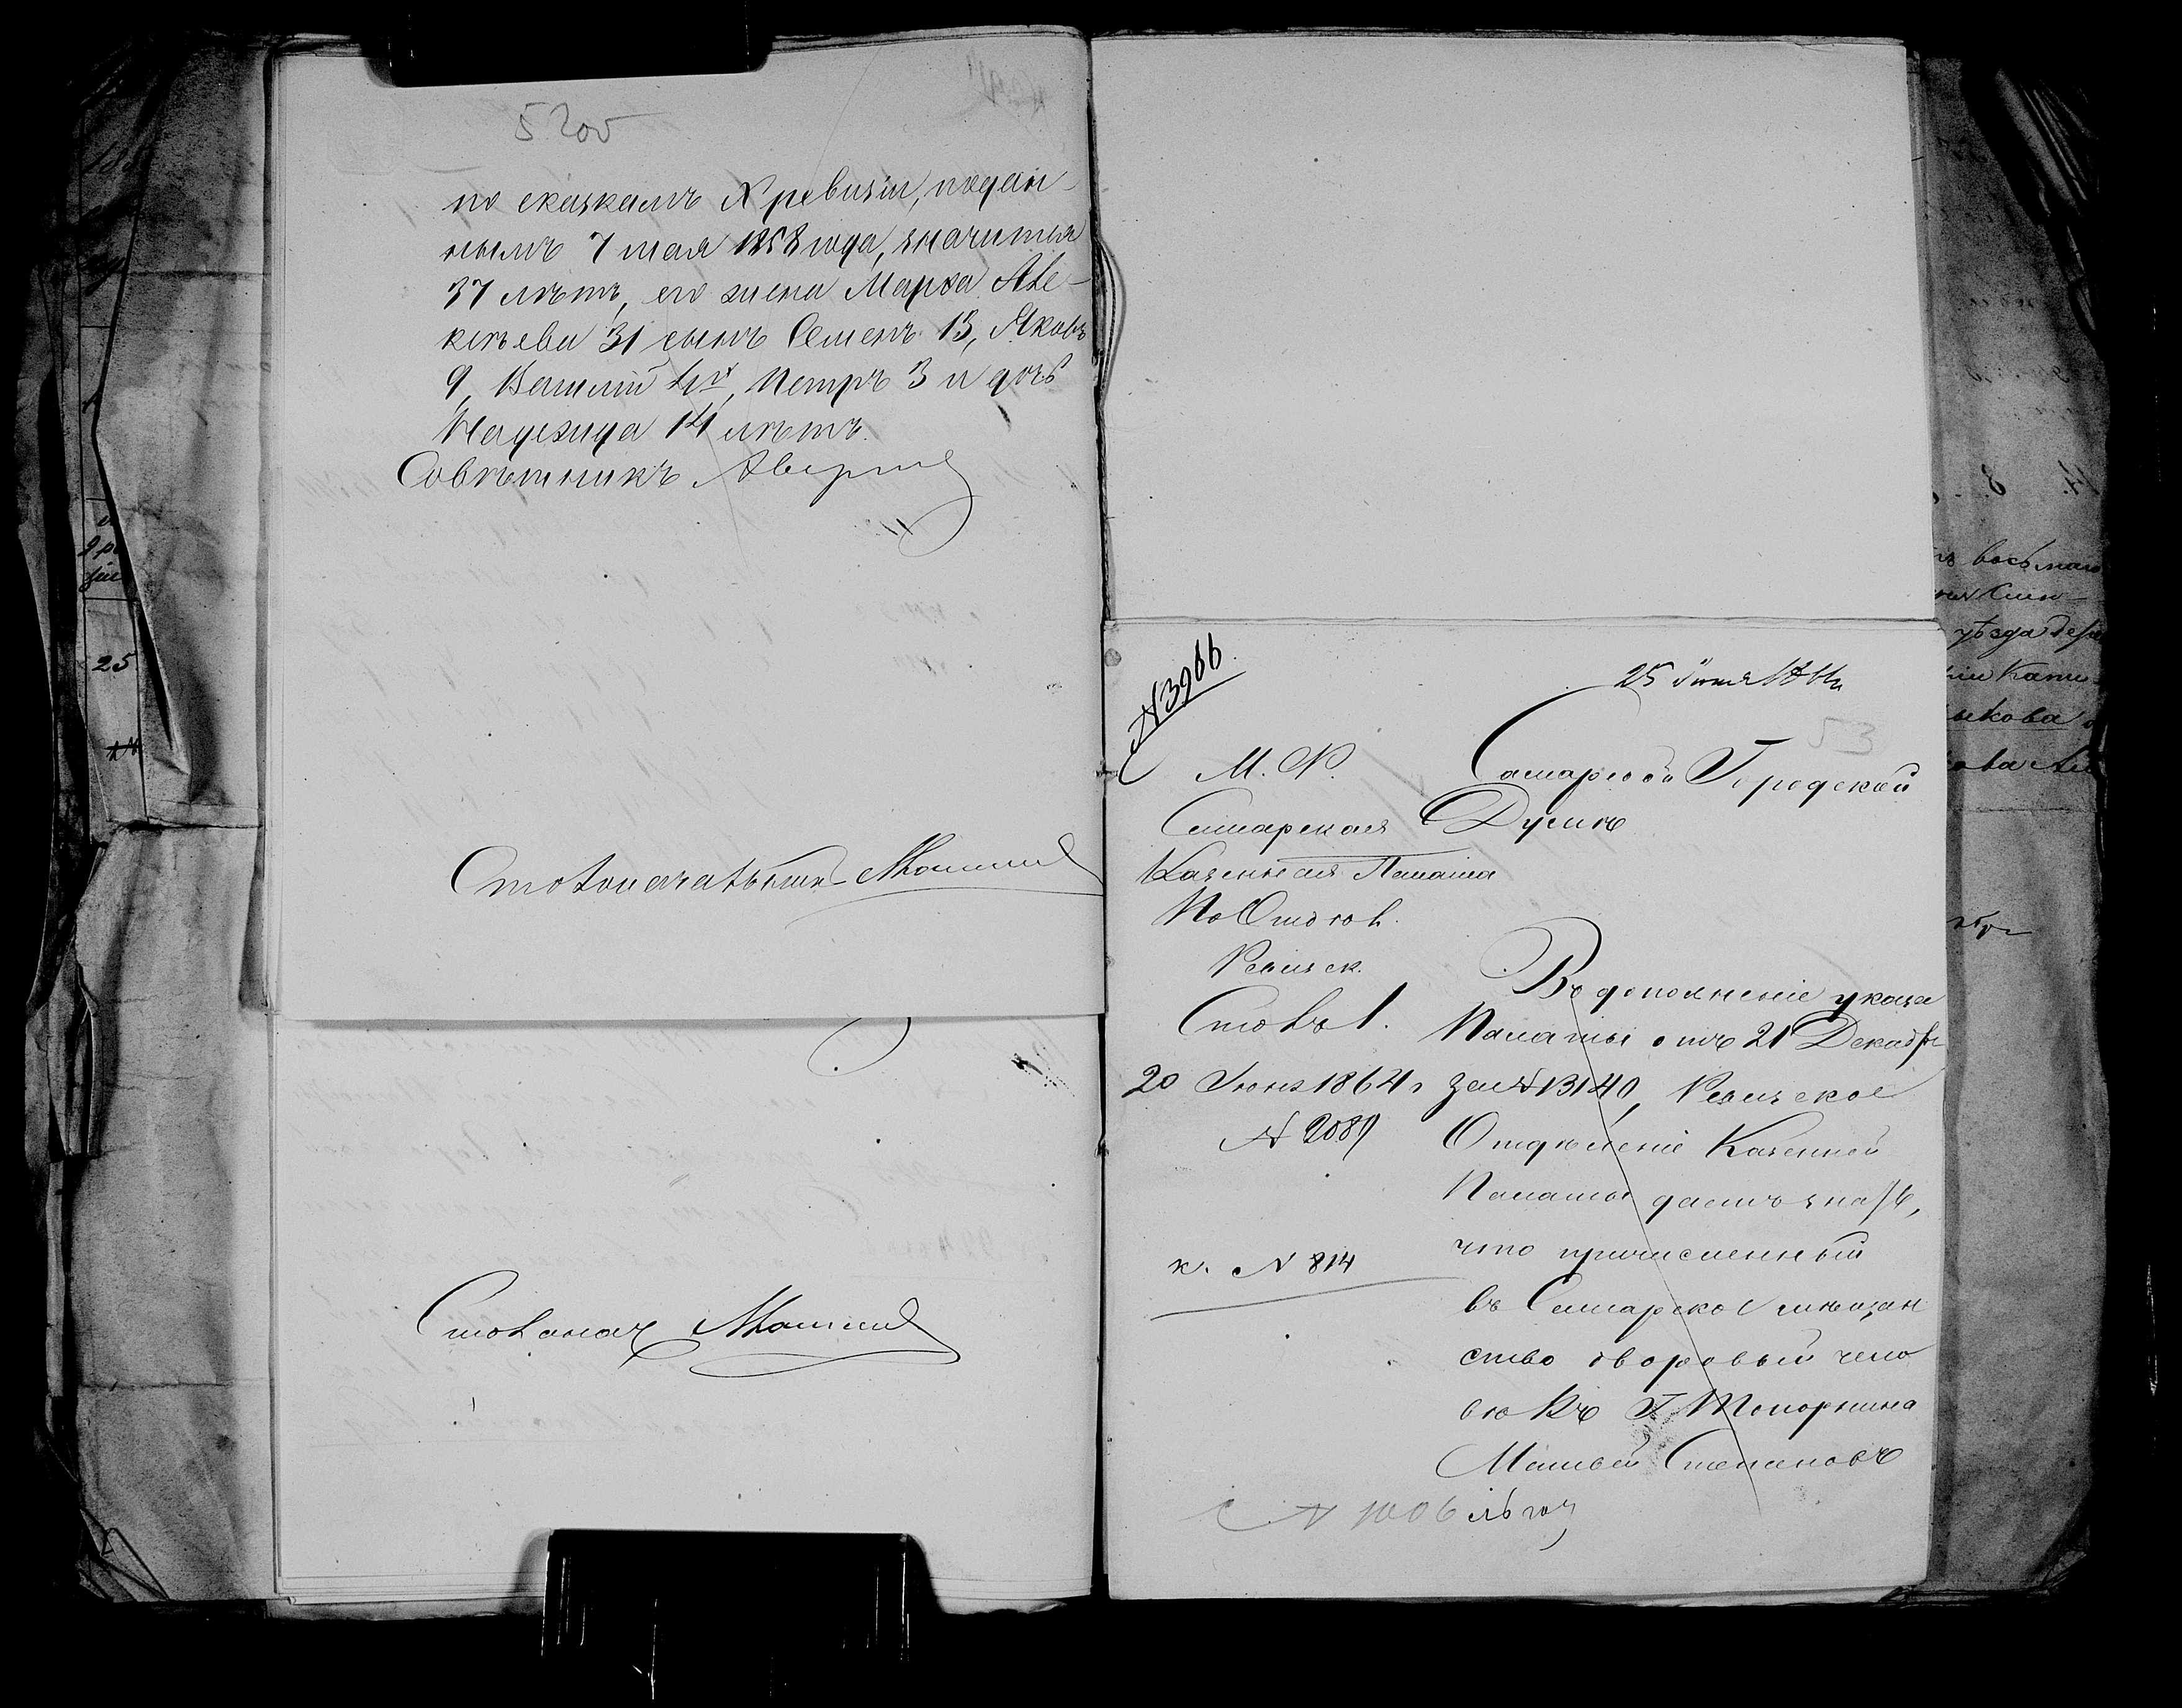 52 об
по сказкамъ X ревизіи, подан-
нымъ 7 мая 1858 года, значится
37 лѣтъ, его жена Марѳа Але-
ксѣева 31 сынъ Семенъ 13, Яковъ
9, Василій Петръ 3 и дочь
Надежда 14 лѣтъ.
Совѣтникъ
Столоначальникъ
Столонач
№ 3966.
25 Іюня 1864
53
М. Ф.
Самарская
Казенная Палата
По Отдѣл.
Ревизск.
Столъ 1.
20 Іюня 1864 г
№ 2089
к. № 814
Самарской Городской
Думѣ
Въ дополненіе указа
Палаты отъ 21 Декабр
за № 13140, Ревизское
Отдѣленіе Казенной
Палаты даетъ знать,
что причисленный
въ Самарское мѣщан
ство дворовый чело
вѣкъ Г. Топорнина
Матвей Степановъ
№ 1006
25